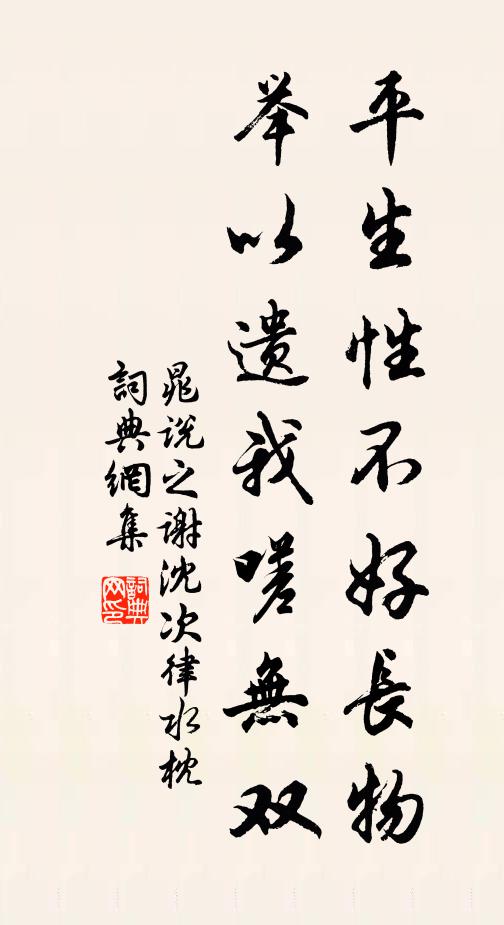 平生性不好長物
举以遗我嗟無双
晁说之谢沈次律水枕
詞典網集
詞典网印